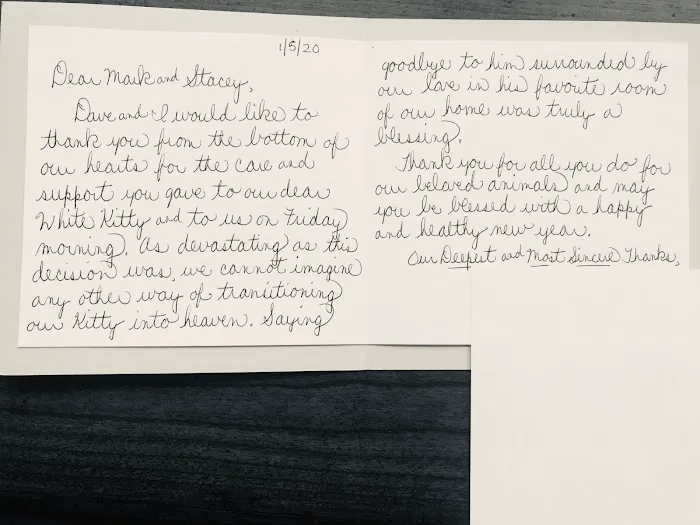 1/5/20
Dear Mark and Stacey,
Dave and I would like to
thank you from the bottom of
our hearts for the care and
support you gave to our dear
White Kitty and to us on Friday
morning. As devastating as this
decision was, we cannot imagine
any other way of transitioning
our Kitty into heaven. Saying
goodbye to him surrounded by
our love in his favorite room
of our home was truly a
blessing.
Thank you for all you do for
our beloved animals and may
you be blessed with a happy
and healthy new year.
Our Deepest and Most Sincere Thanks,